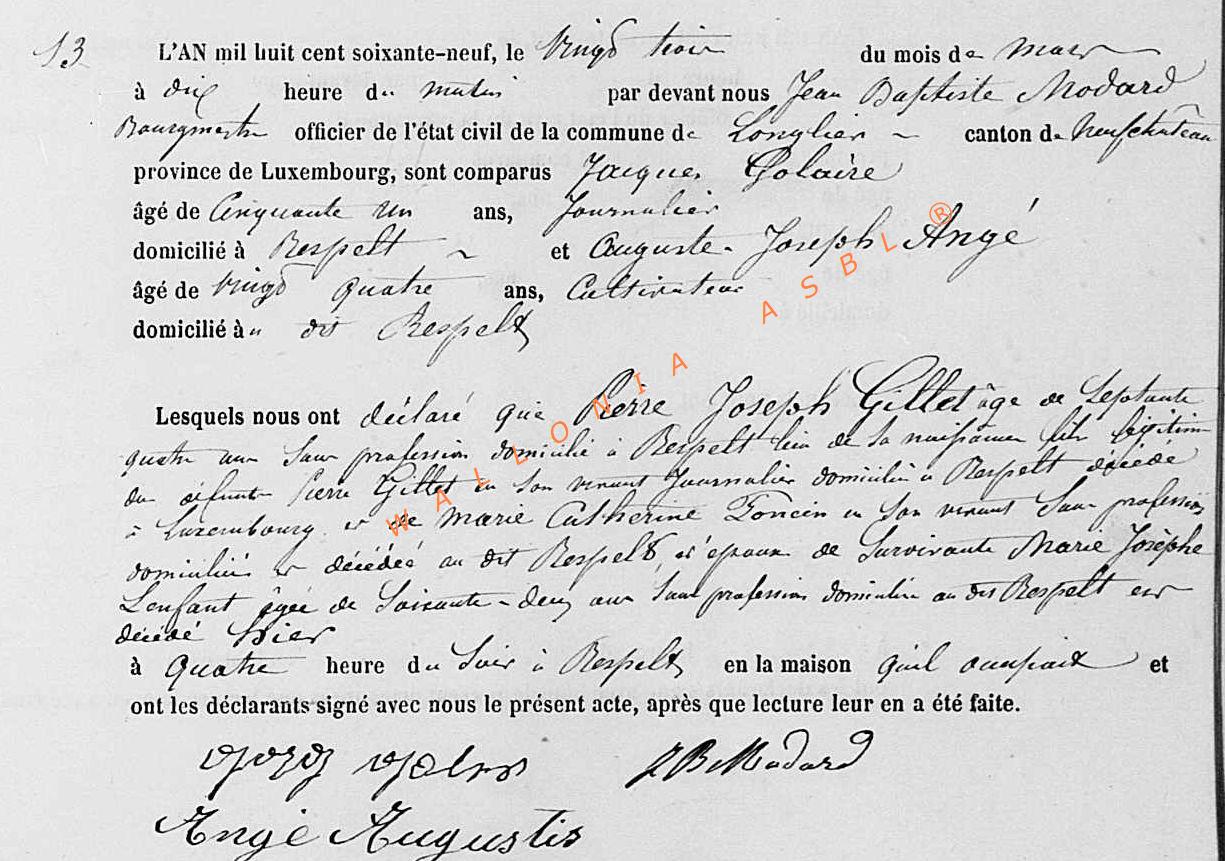 13
L'AN mil huit cent soixante-neuf, le Vingt trois du mois de mars
à dix heure du matin par devant nous Jean Baptiste Modard
Bourgmestre officier de l'état civil de la commune de Longlier canton de Neufchâteau
province de Luxembourg, sont comparus Jacques Golaire
âgé de Cinquante un ans, Journalier
domicilié à Respelt et Auguste Joseph Angé
âgé de Vingt quatre ans, Cultivateur
domicilié à u dit Respelt
Lesquels nous ont déclaré que Pierre Joseph Gillet âgé de Septante
quatre ans sans profession domicilié à Respelt lieu de sa naissance fils légitime
du défunt Pierre Gillet en son vivant Journalier domicilié à Respelt décédé
à Luxembourg et de Marie Catherine Poncin en son vivant sans profession
domiciliée et décédée au dit Respelt, et époux de Survivante Marie Josèphe
Lenfant âgée de Soixante-deux ans sans profession domiciliée au dit Respelt est
décédé hier
à Quatre heure du Soir à Respelt en la maison qu'il occupait et
ont les déclarants signé avec nous le présent acte, après que lecture leur en a été faite.
J B Modard
Angé Augustis
WALLONIA ASBL ®